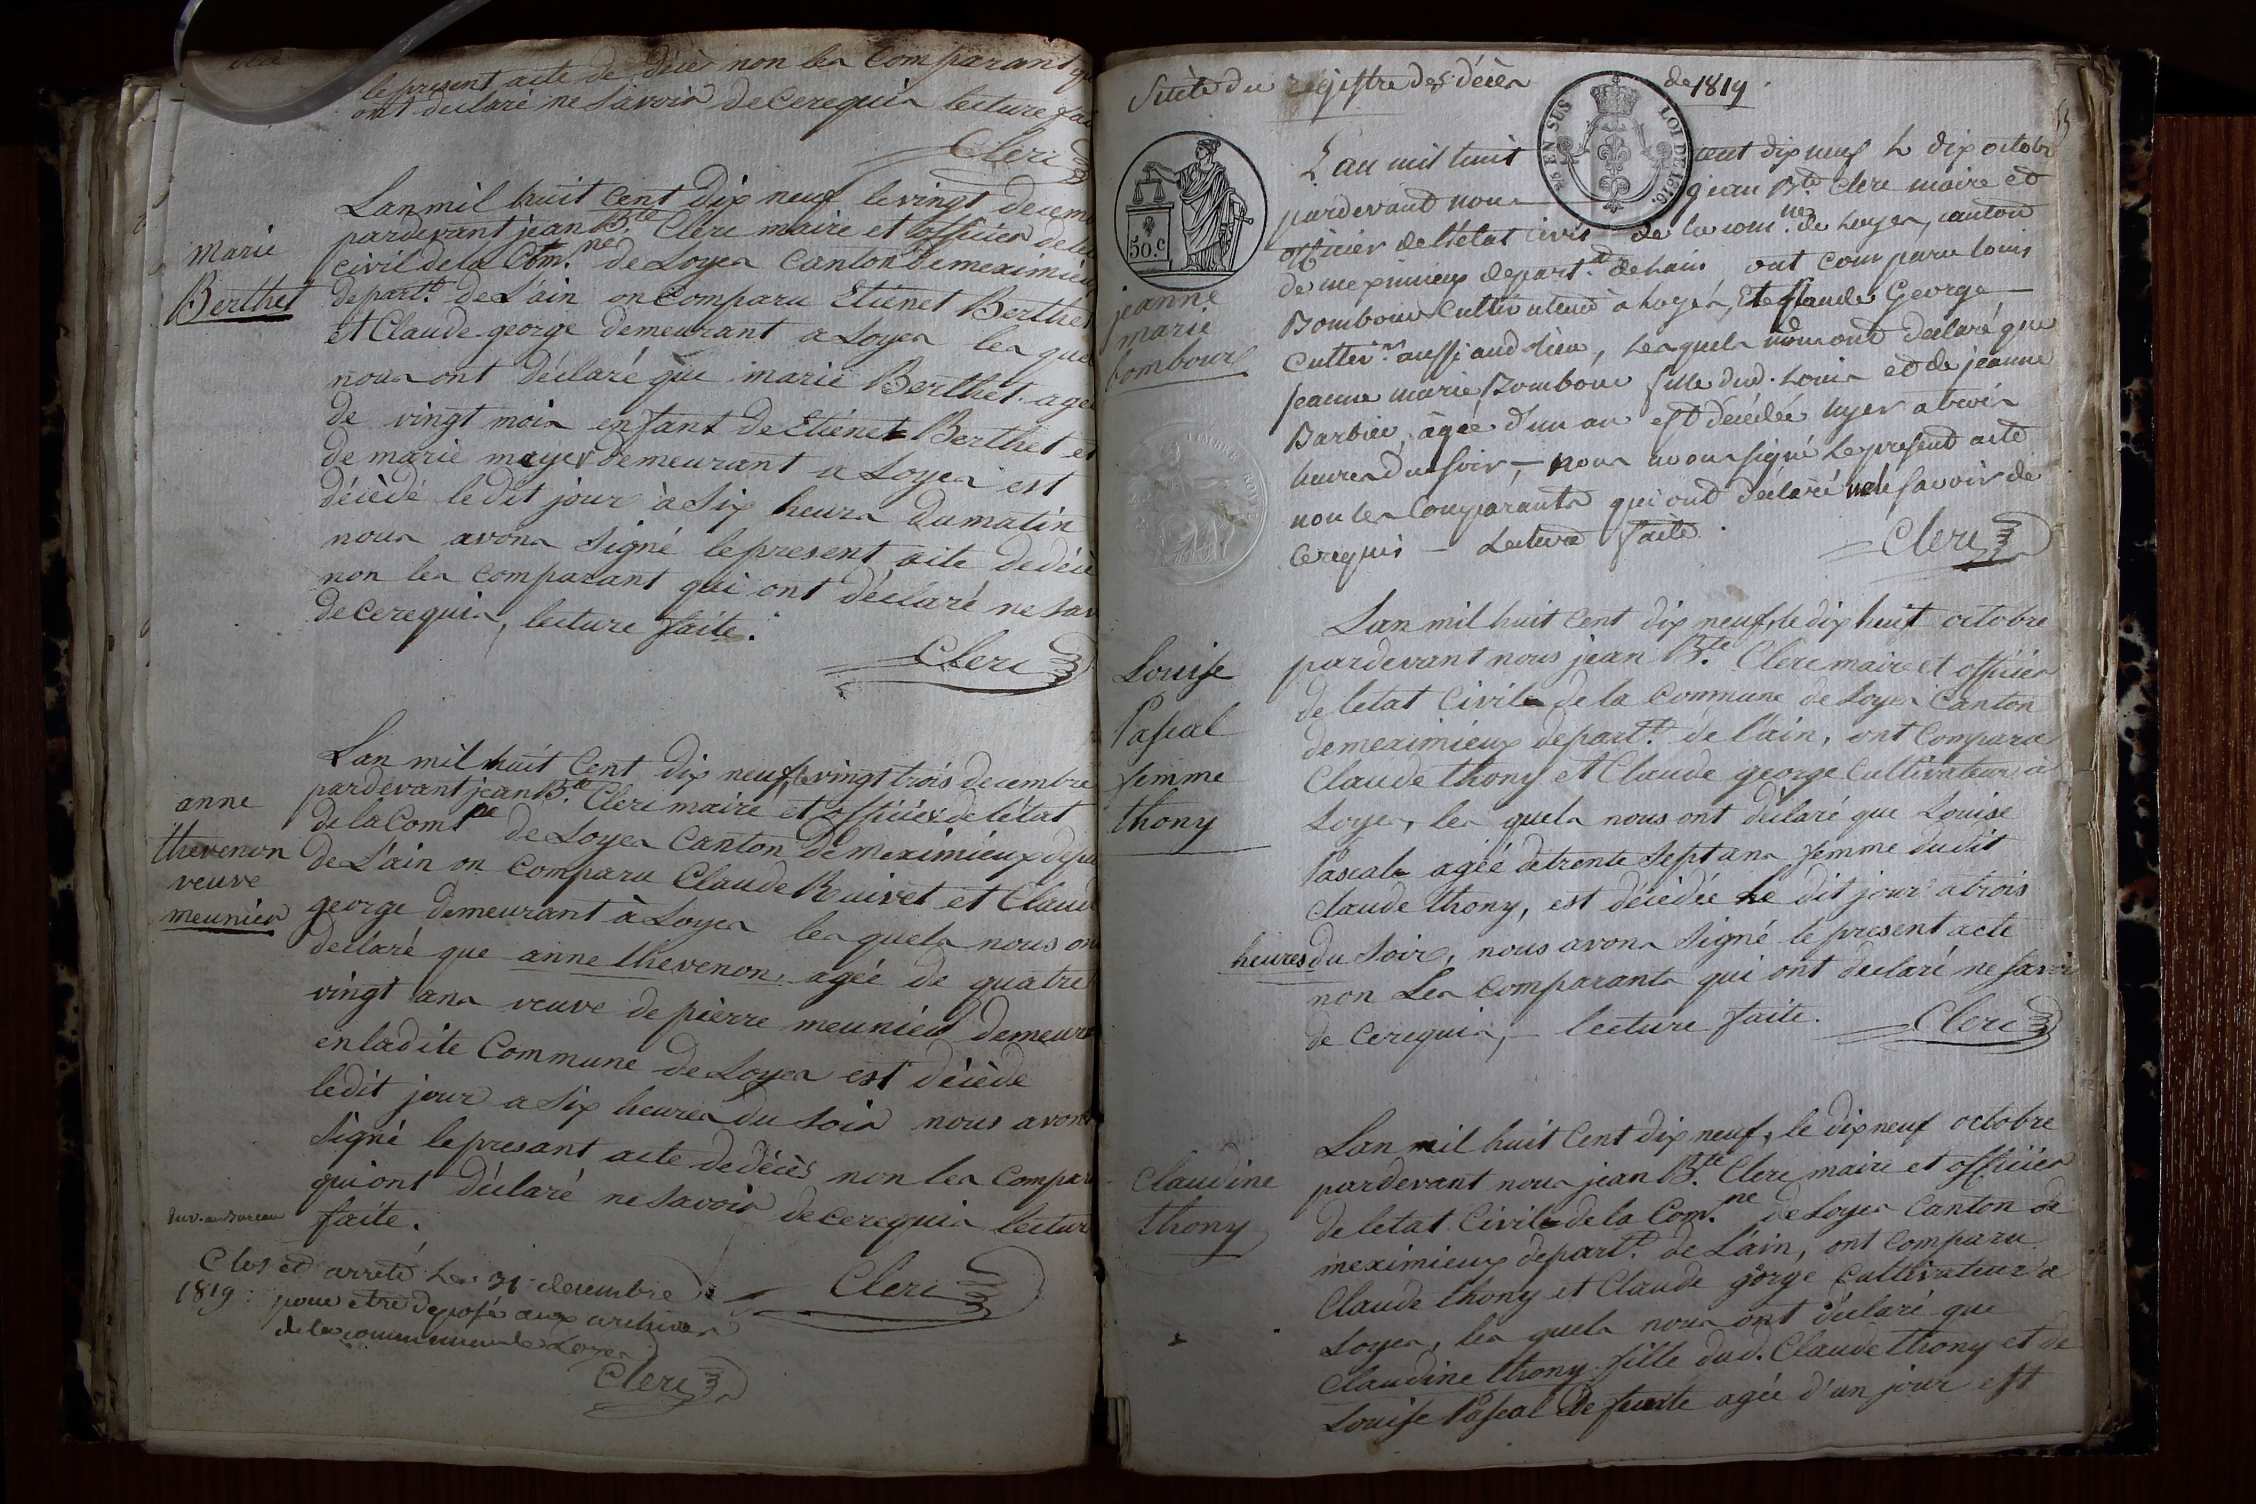 le present acte de décès non les Comparant qu
ont declaré ne Savoir de Cerequis lecture fai
Clerc
Marie
Berthet
Lan mil huit Cent Dix neuf le vingt decemb
pardevant jean B.te Clerc maire et officier de let
Civil de la Com.ne de Loyes Canton de meximieu
depart.t de L'ain on Comparu Etienet Berthet
et Claude george demeurant a Loyes les que
nous ont déclaré que marie Berthet agee
de vingt mois enfant de Etienet Berthet et
de marie mayer demeurant a Loyes est
décédé le dit jour à Six heurs du matin
nous avons Signé le present acte de décè
non les Comparant qui ont déclaré ne Sav
de Cerequis, lecture faite.
Clerc
anne
thevenon
veuve
meunier
Lan mil huit Cent dix neuf, le vingt trois decembre
pardevant jean B.te Clerc maire et officier de létat
de la Com.ne de Loyes Canton de Meximieux depa
de L'ain on Comparu Claude Ruivet et Claud
george demeurant à Loyes les quels nous on
declaré que anne thevenon, agée de quatre
vingt ans veuve de pierre meunier demeura
en ladite Commune de Loyes est décédé
ledit jour a Six heures du Soir nous avons
Signé le presant acte de décès non les Compar
qui ont déclaré ne Savoir de Cerequis lectur
faite.
Clerc
Clos et arrêté Le 31 decembre
1819. pour etre deposé aux archives
de la commune de Loyes
Clerc
Suite du registre des décès de 1819
25 EN SUS LOI DE 1816.
50.c
TIMBRE ROYAL
jeanne
marie
bombour
L'an mil huit cent dix neuf le dix octobr
pardevant nous jean B.te Clerc maire et
officier de l'état civil de la com.ne de Loyes, canton
de meximieux depart.t de lain, ont comparu louis
Bombour Cultivateur à Loyes, Et Claude George
Cultiv.r aussi aud. lieu, Lesquels nous ont declaré que
jeanne marie Bombour fille dud. Louis et de jeanne
Barbier, agée d'un an est décédée hyer a trois
heures du soir, — nous avons signé le present acte
non les Comparants qui ont déclaré ne savoir de
Cerequis — Lecture faite.
Clerc
Louise
Pascal
femme
thony
Lan mil huit Cent dix neuf, le dix huit octobre
pardevant nous jean B.te Clerc maire et officier
de letat Civil de la Commune de Loyes Canton
de meximieux depart.t de l'ain, ont Comparu
Claude thony et Claude george Cultivateur à
Loyes, les quels nous ont déclaré que Louise
Pascal agée de trente Sept ans femme du dit
Claude thony, est décédée Le dit jour a trois
heures du Soir, nous avons Signé le present acte
non Les Comparants qui ont declaré ne Savoir
de Cerequis, — lecture faite.
Clerc
Claudine
thony
Lan mil huit Cent dix neuf, le dix neuf octobre
pardevant nous jean B.te Clerc maire et officier
de letat Civil de la Com.ne de Loyes Canton de
meximieux depart.t de L'ain, ont Comparu
Claude thony et Claude gorge Cultivateur a
Loyes, les quels nous ont déclaré que
Claudine thony fille dud. Claude thony et de
Louise Pascal defuncte agée d'un jour est